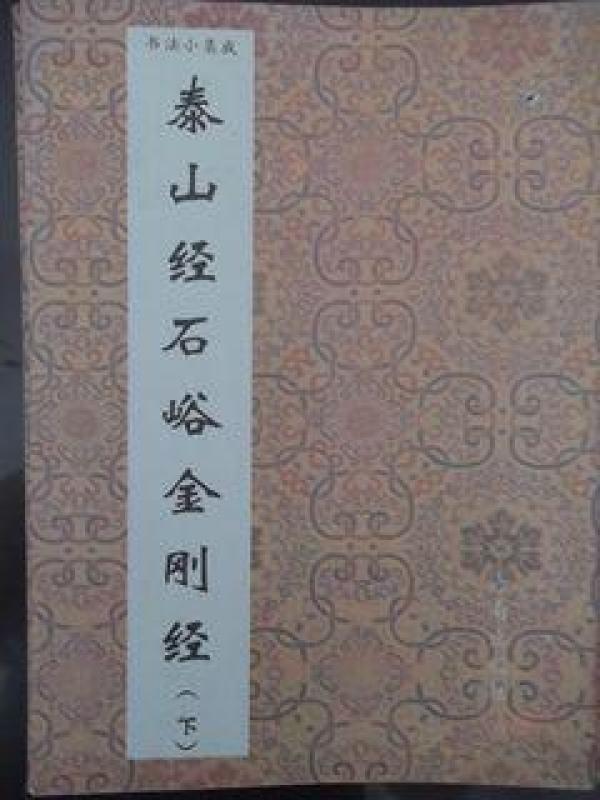 书法小集成
泰山经石峪金刚经
（下）